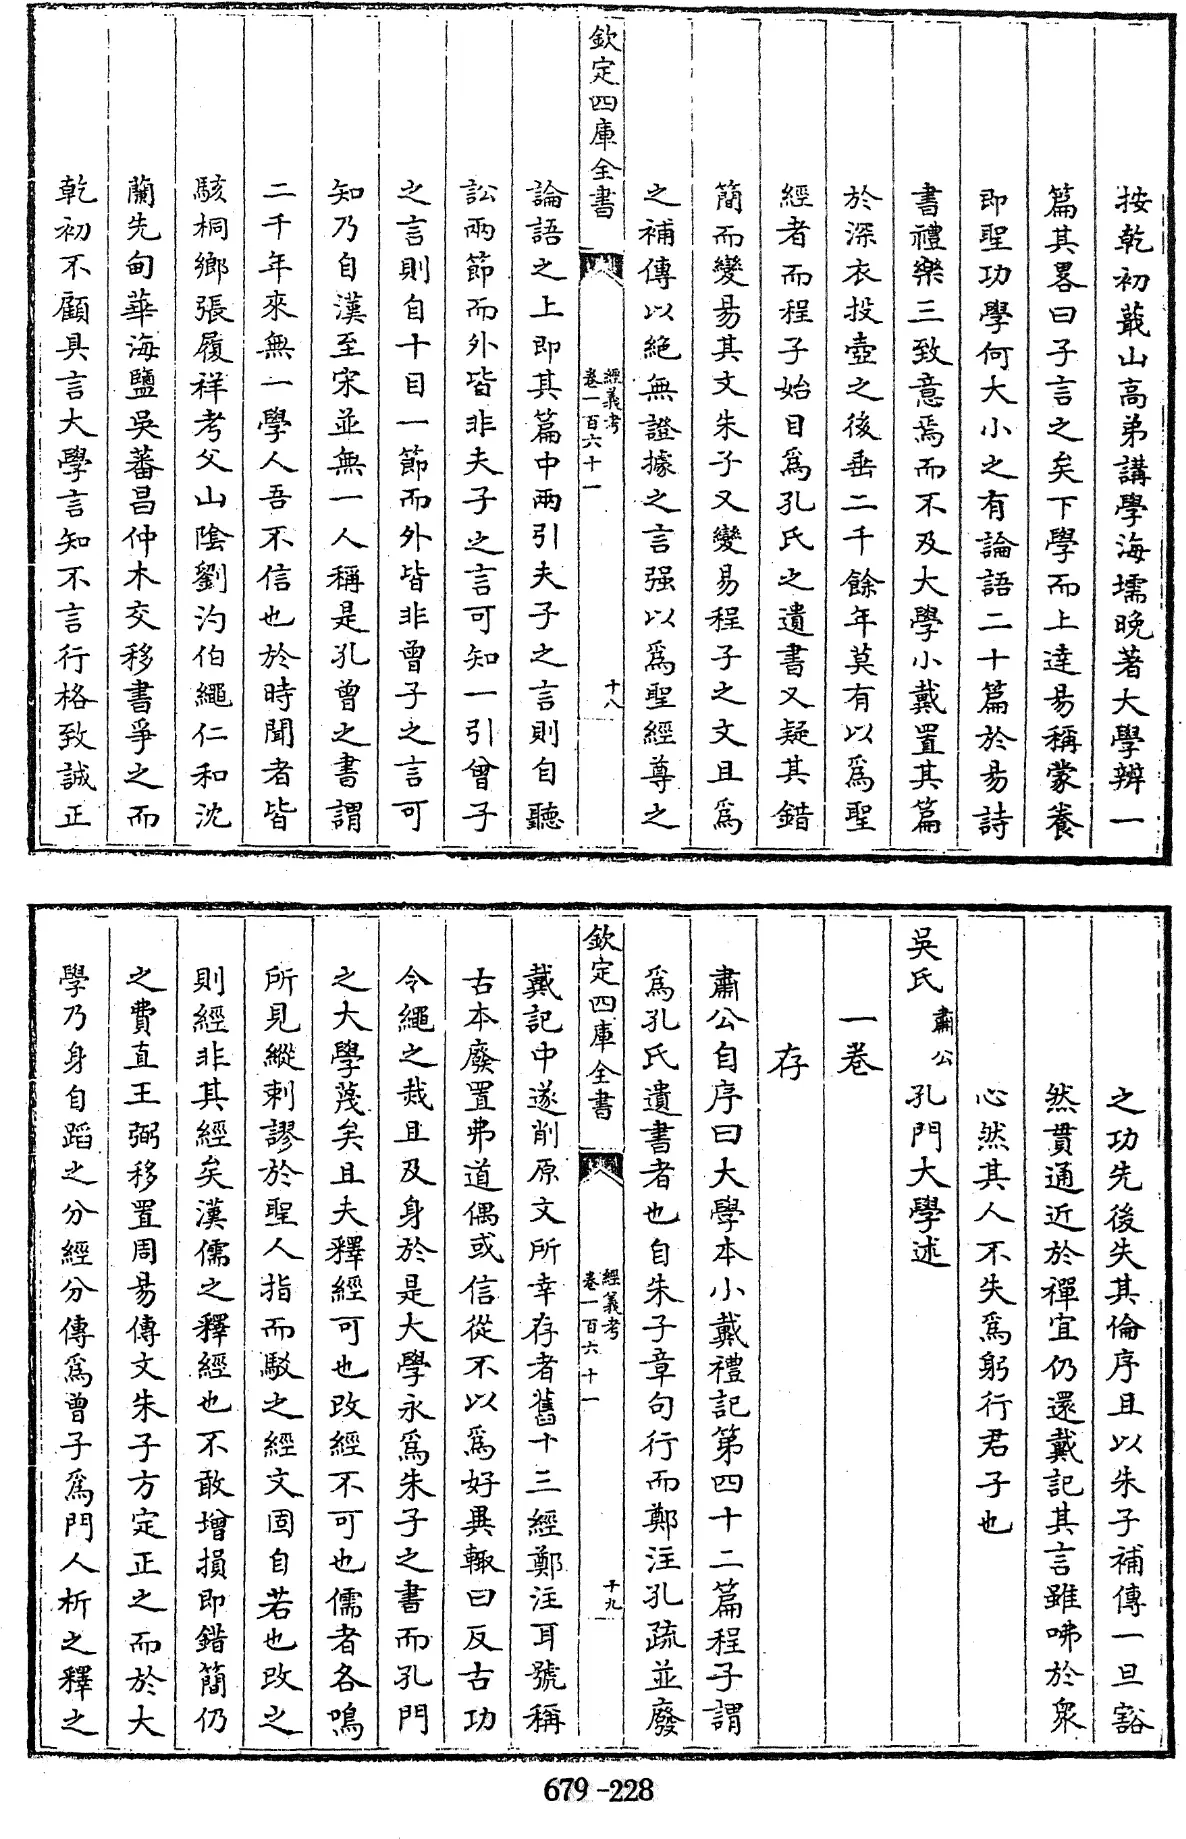 按乾初蕺山高弟講學海壖晚著大學辨一
篇其畧曰子言之矣下學而上達易稱蒙養
即聖功學何大小之有論語二十篇於易詩
書禮樂三致意焉而不及大學小戴置其篇
於深衣投壺之後垂二千餘年莫有以爲聖
經者而程子始目爲孔氏之遺書又疑其錯
簡而變易其文朱子又變易程子之文且爲
之補傳以絶無證據之言强以爲聖經尊之
欽定四庫全書
經義考
卷一百六十一
十八
論語之上即其篇中兩引夫子之言則自聽
訟兩節而外皆非夫子之言可知一引曾子
之言則自十目一節而外皆非曾子之言可
知乃自漢至宋並無一人稱是孔曾之書謂
二千年來無一學人吾不信也於時聞者皆
駭桐鄉張履祥考父山陰劉汋伯繩仁和沈
蘭先甸華海鹽吳蕃昌仲木交移書爭之而
乾初不顧具言大學言知不言行格致誠正
之功先後失其倫序且以朱子補傳一旦豁
然貫通近於禪宜仍還戴記其言雖咈於衆
心然其人不失爲躬行君子也
吳氏肅公孔門大學述
一卷
存
肅公自序曰大學本小戴禮記第四十二篇程子謂
爲孔氏遺書者也自朱子章句行而鄭注孔疏並廢
欽定四庫全書
經義考
卷一百六十一
十九
戴記中遂削原文所幸存者舊十三經鄭注耳號稱
古本廢置弗道偶或信從不以爲好異輒曰反古功
令繩之烖且及身於是大學永爲朱子之書而孔門
之大學蔑矣且夫釋經可也改經不可也儒者各鳴
所見縱剌謬於聖人指而駁之經文固自若也改之
則經非其經矣漢儒之釋經也不敢增損即錯簡仍
之費直王弼移置周易傳文朱子方定正之而於大
學乃身自蹈之分經分傳爲曾子爲門人析之釋之
679-228